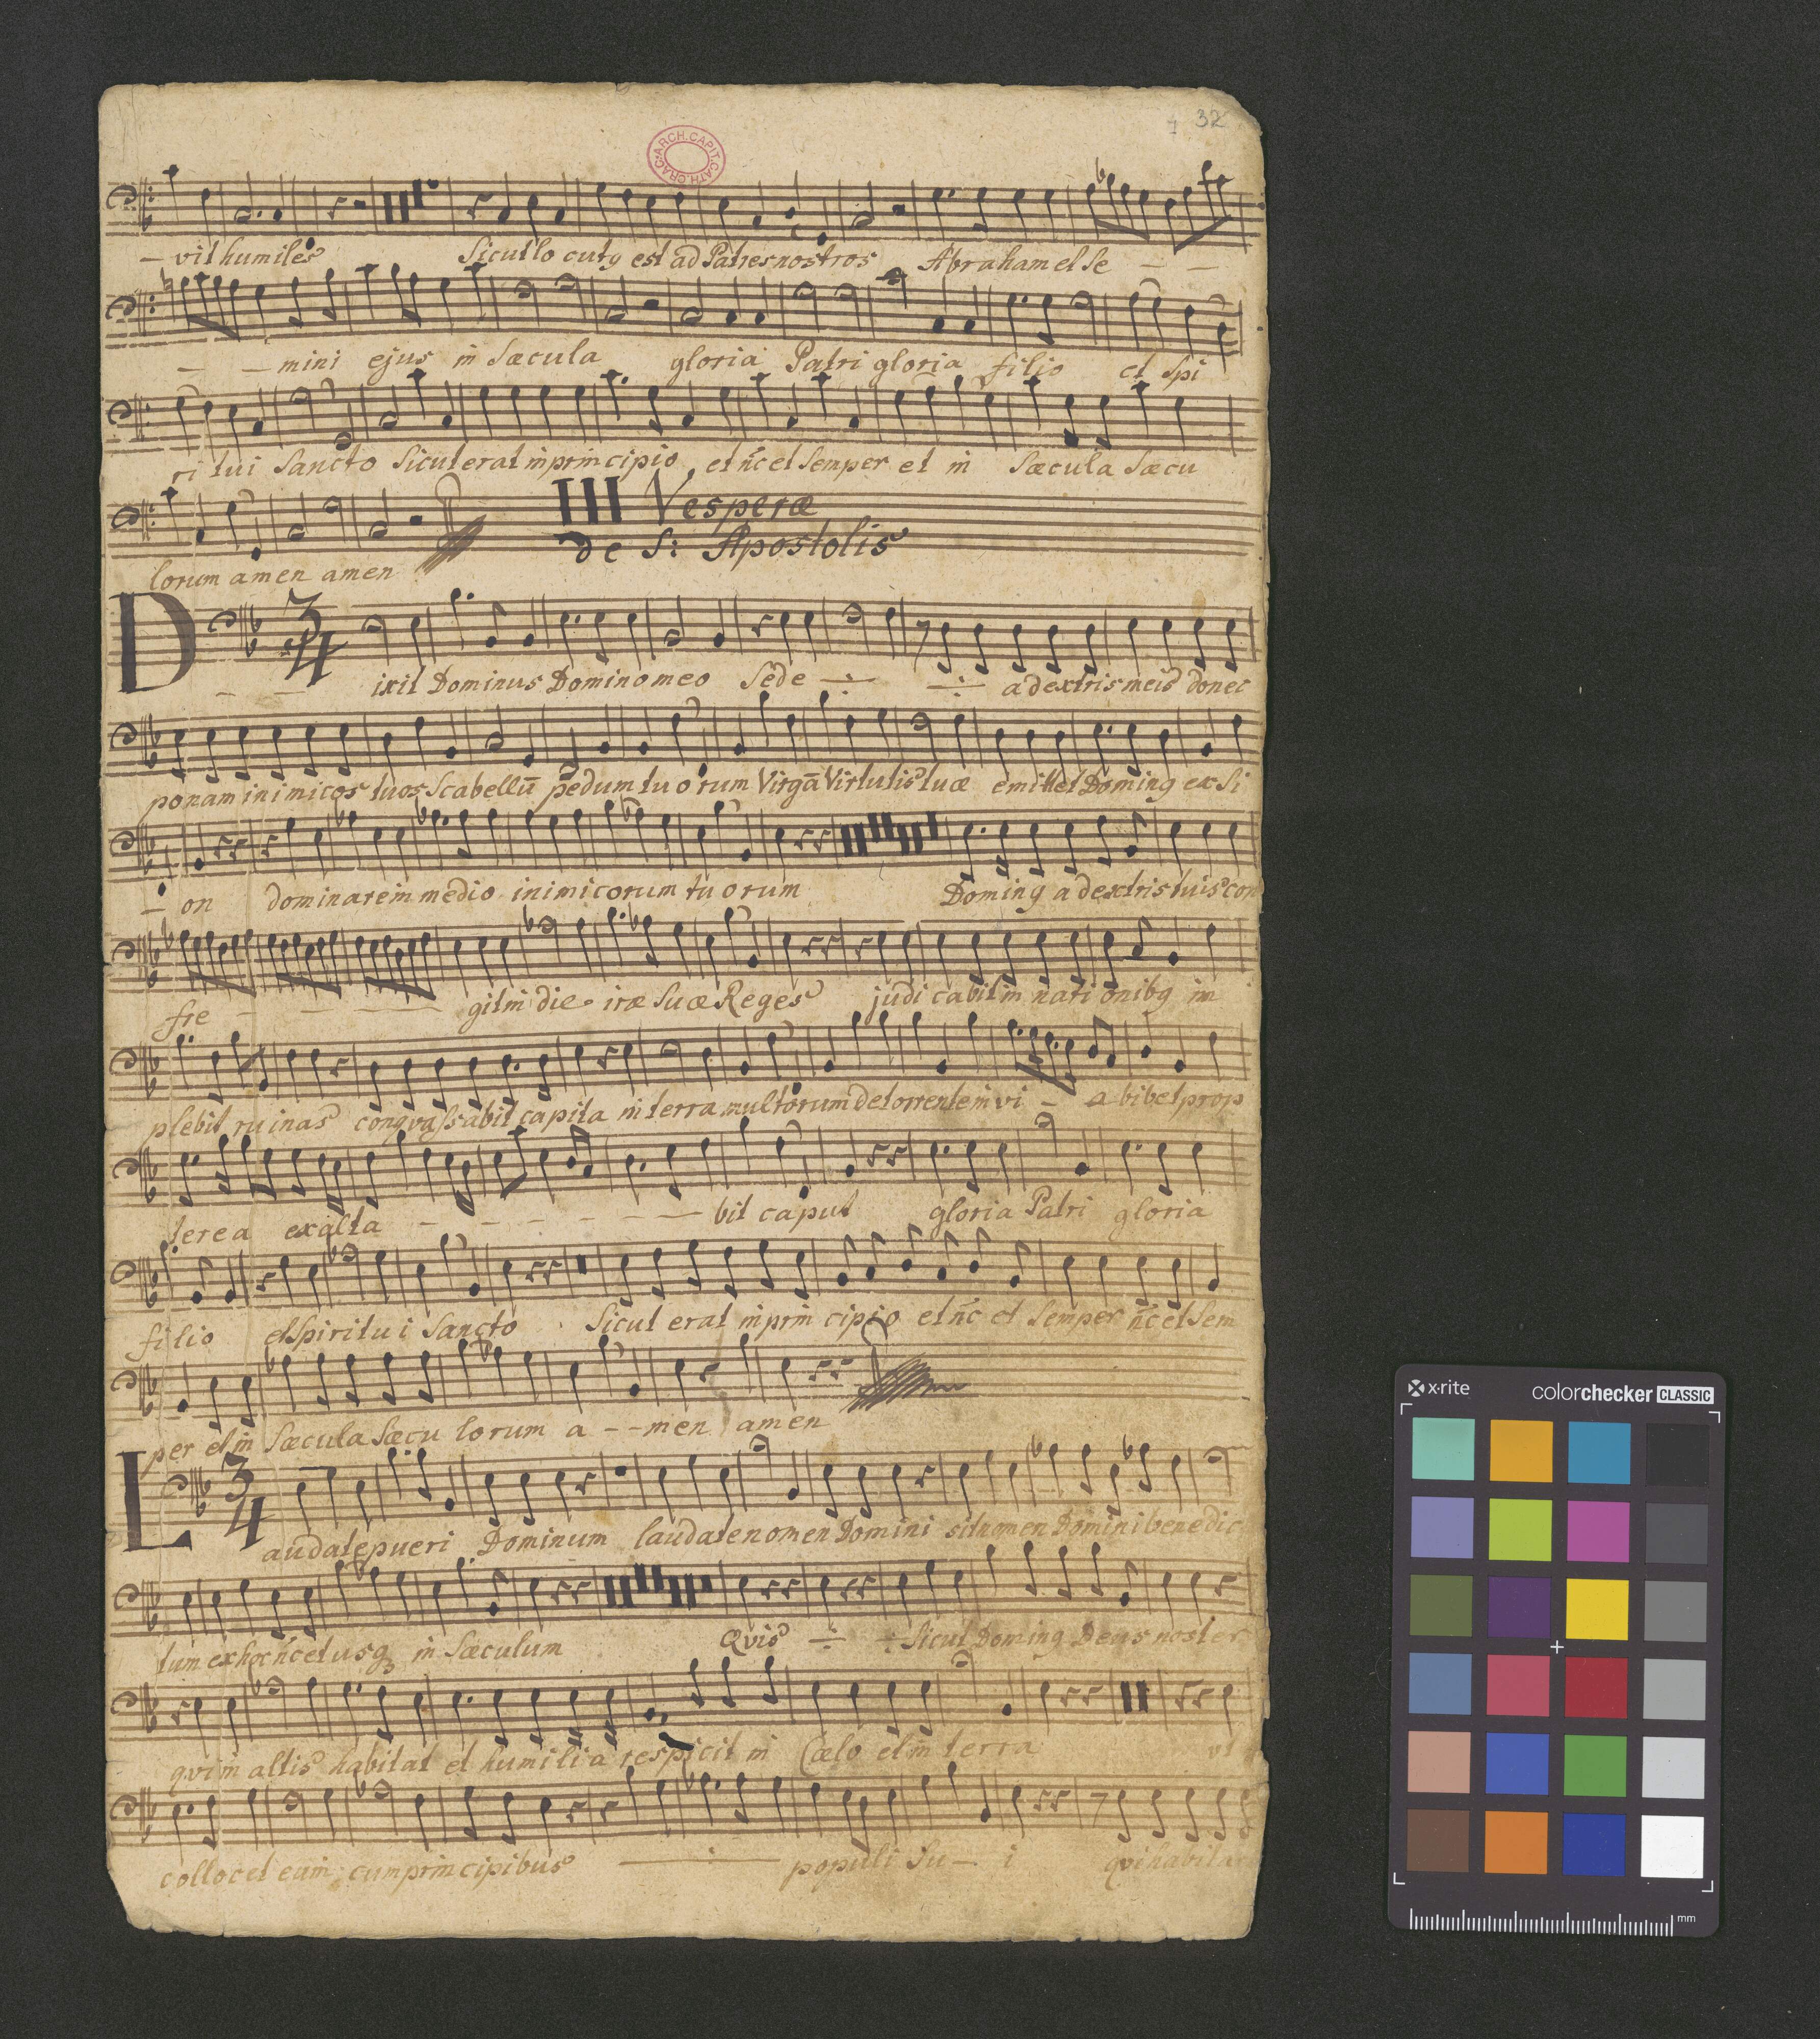 1 32
ARCH.CAPIT.CATH.CRAC
– vit humiles Sicut lo cutg est ad Patres nostros Abraham et Se – –
– – mini ejus in Sæcula gloria Patri gloria filio et Spi
ri tui Sancto Sicut erat in prin cipio et nc̃ et Semper et in Sæcula Sæcu
lorum amen amen
III Vesperæ
de S: Apostolis
D – – ixit Dominus Domino meo Sede –÷– –÷– a dextris meis donec
ponam ini micos tuos Scabellū pedum tu o rum Virgā Virtutis tuæ emittet Doming ex Si
– on dominare in medio inimicorum tu o rum Doming a dextris tuis con
fre – – – git in die iræ Suæ Reges judi cabit in nati onibg im
plebit ru inas conqvassabit capita in terra multorum De torrente in vi – a bibet prop
terea exalta – – – – – – bit caput gloria Patri gloria
filio et Spiritu i Sancto Sicut erat in prin cipio et nc̃ et Semper nc̃ et Sem
per et in Sæcula Sæcu lorum a – – men amen
L 3/4
audate pueri Dominum laudate nomen Domini sit nomen Domini benedic
tum ex hoc nc̃ et usq in Sæculum Qvis ÷ ÷ Sicut Doming Deus noster
qvi in altis habitat et humilia respicit in Cælo et in terra vt
collocet eum cum principibus –÷– populi Su – i qvi habitar
x-rite
colorchecker CLASSIC
mm